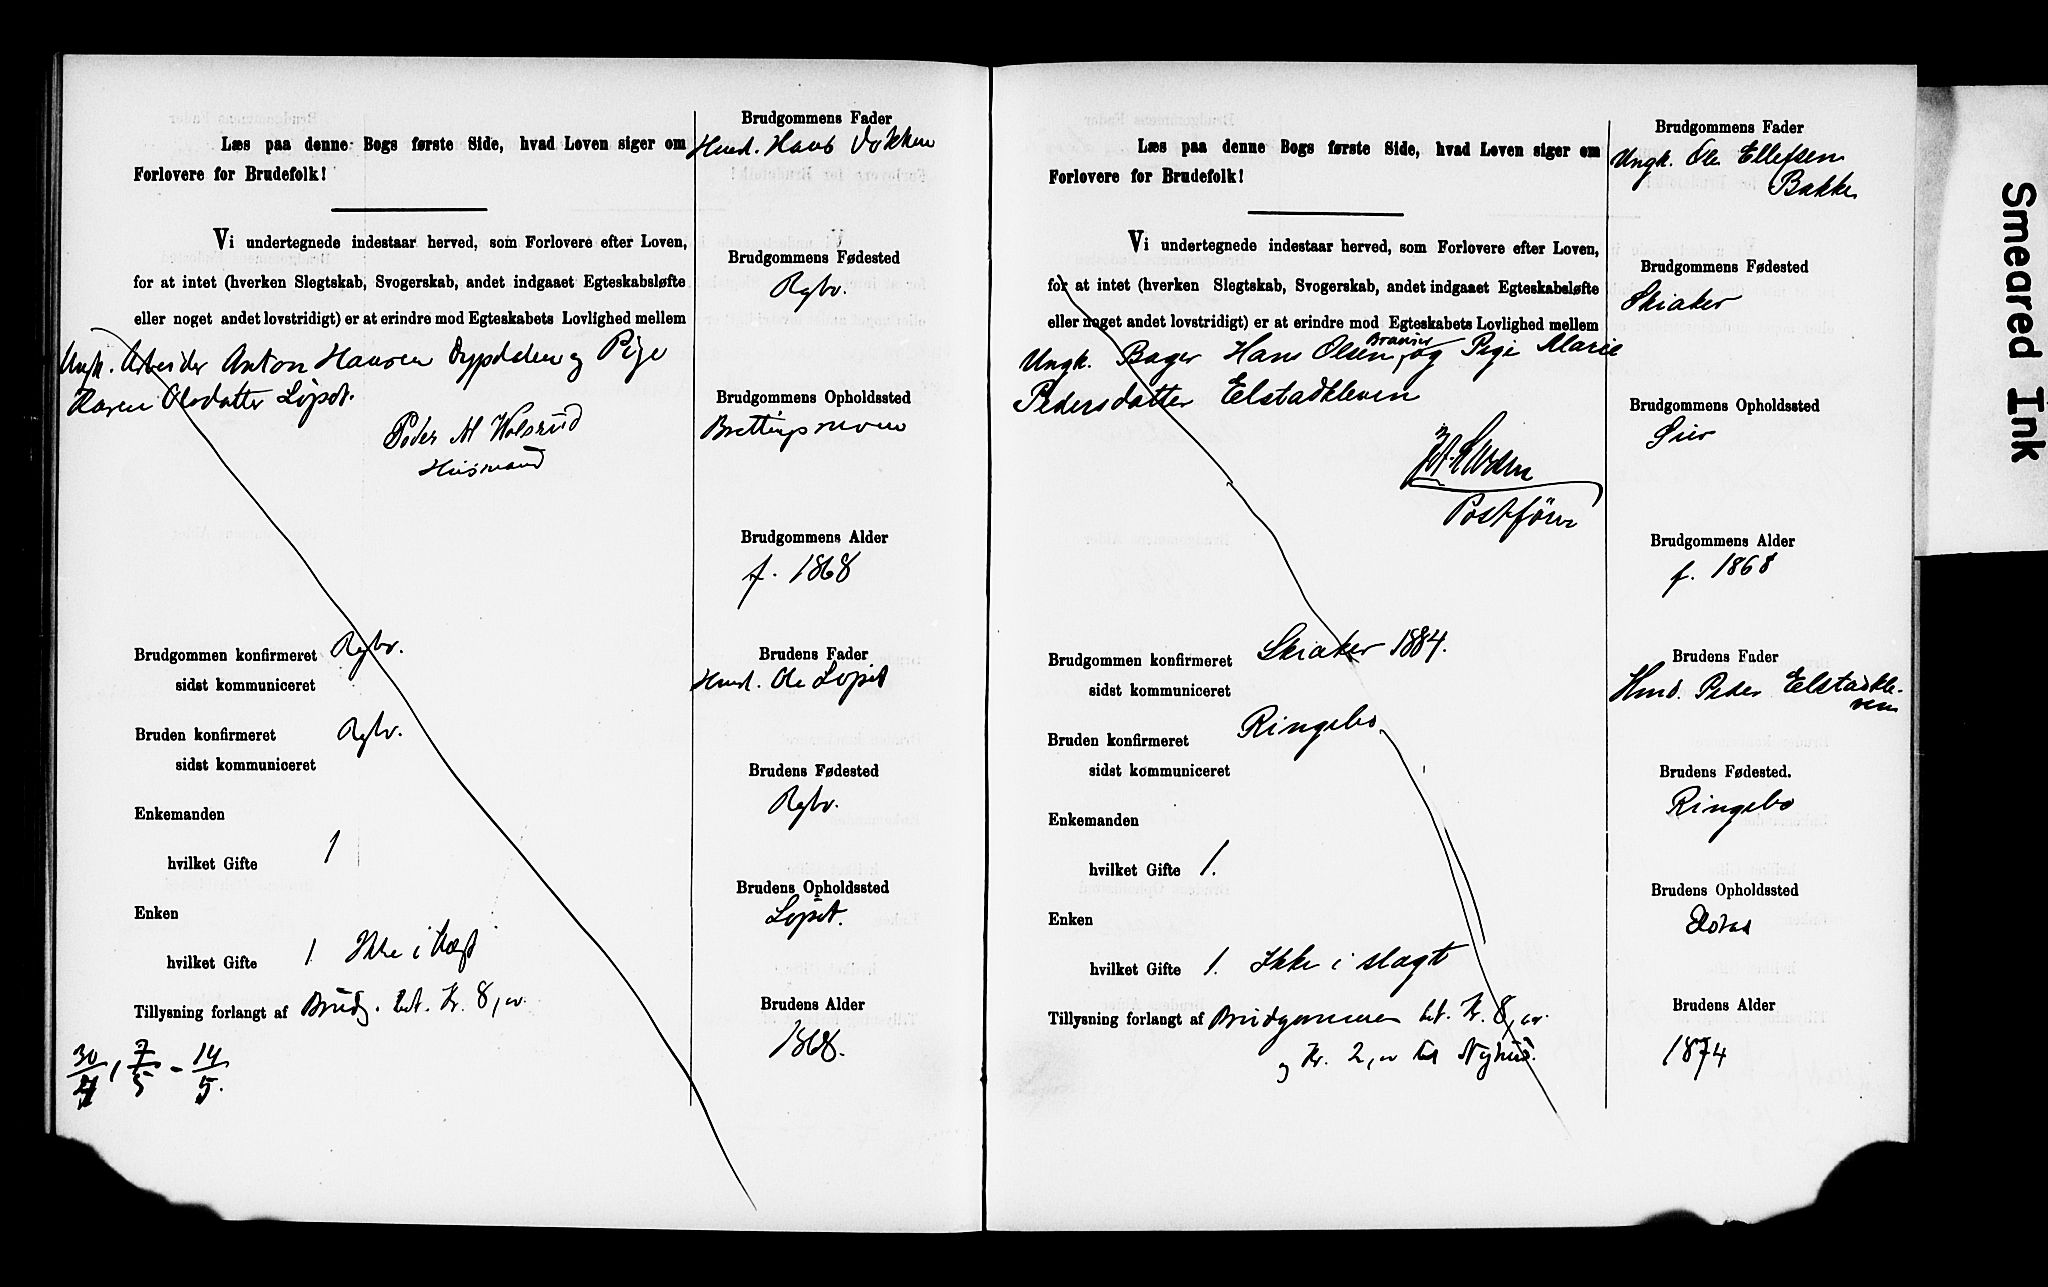 Læs paa denne Bogs første Side, hvad Loven siger om
Forlovere for Brudefolk!
Vi undertegnede indestaar herved, som Forlovere efter Loven,
for at intet (hverken Slegtskab, Svogerskab, andet indgaaet Egteskabsløfte
eller noget andet lovstridigt) er at erindre mod Egteskabets Lovlighed mellem
Ungk. Arbeider Anton Hansen og Pige
Karen Olsdatter Løpet.
Peder M Kolsrud
Husmand
Brudgommen konfirmeret Rgbo.
sidst kommuniceret
Bruden konfirmeret Rgbo.
sidst kommuniceret
Enkemanden
hvilket Gifte 1
Enken
hvilket Gifte 1 Ikke i slægt
Tillysning forlangt af Brudg. bet. Kr. 8,
30/4, 7/5 - 14/5.
Brudgommens Fader
Husd. Hans
Brudgommens Fødested
Rgbo.
Brudgommens Opholdssted
Brudgommens Alder
f. 1868
Brudens Fader
Husd. Ole Løpet
Brudens Fødested
Rgbo.
Brudens Opholdssted
Løpet.
Brudens Alder
1868.
Læs paa denne Bogs første Side, hvad Loven siger om
Forlovere for Brudefolk!
Vi undertegnede indestaar herved, som Forlovere efter Loven,
for at intet (hverken Slegtskab, Svogerskab, andet indgaaet Egteskabsløfte
eller noget andet lovstridigt) er at erindre mod Egteskabets Lovlighed mellem
Ungk. Bager Hans Olsen og Pige Marie
Pedersdatter Elstadkleven
Postfører
Brudgommen konfirmeret Skiaker 1884.
sidst kommuniceret
Bruden konfirmeret Ringebo
sidst kommuniceret
Enkemanden
hvilket Gifte 1.
Enken
hvilket Gifte 1. Ikke i slægt
Tillysning forlangt af Brudgommen bet. Kr. 8,
og Kr. 2, til
Brudgommens Fader
Ungk. Ole Ellefsen
Bakke
Brudgommens Fødested
Skiaker
Brudgommens Opholdssted
Brudgommens Alder
f. 1868
Brudens Fader
Hmd. Peder Elstadkle-
ven
Brudens Fødested.
Ringebo
Brudens Opholdssted
Brudens Alder
1874
Smeared Ink